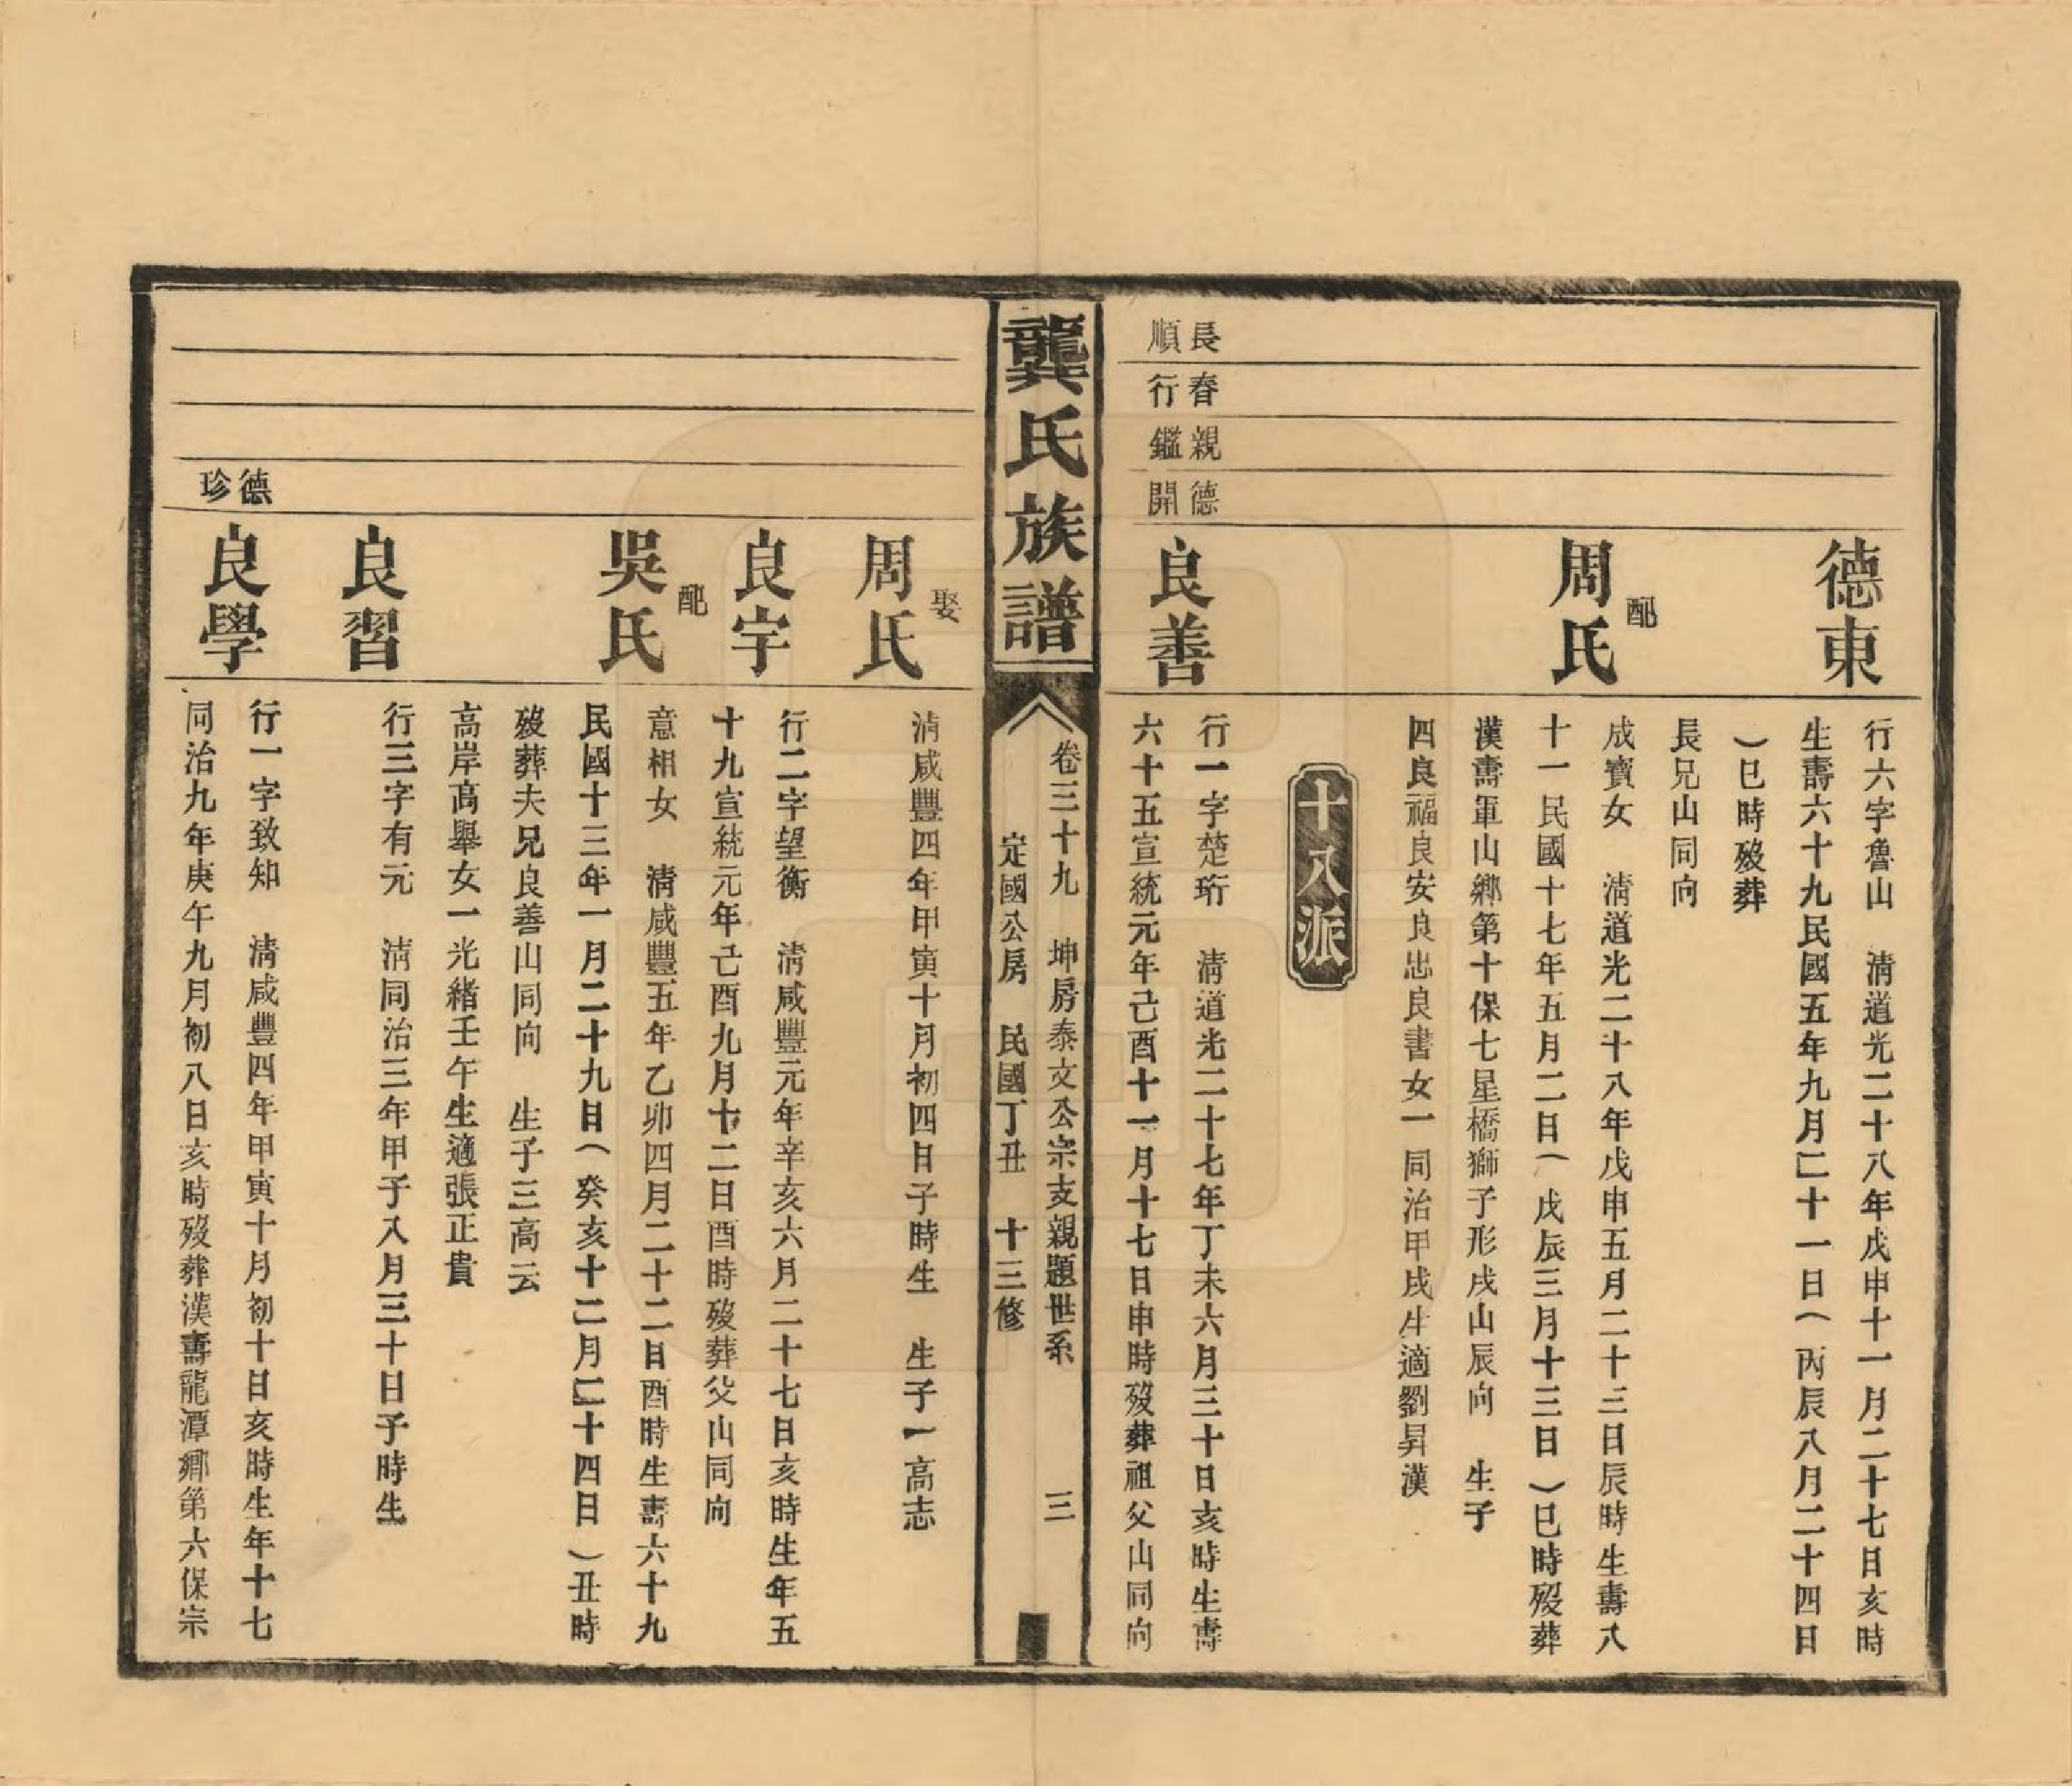 德東
行六字魯山　清道光二十八年戊申十一月二十七日亥時
生壽六十九民國五年九月二十一日（丙辰八月二十四日
）巳時歿葬
長兄山同向
配
周氏
成寶女　清道光二十八年戊申五月二十三日辰時生壽八
十一民國十七年五月二日（戊辰三月十三日）巳時歿葬
漢壽軍山鄉第十保七星橋獅子形戌山辰向　生子
四良福良安良忠良書女一同治甲戌生適劉昇漢
十八派
長春親德
順行鑑開
良善
行一字楚珩　清道光二十七年丁未六月三十日亥時生壽
六十五宣統元年己酉十一月十七日申時歿葬祖父山同向
龔氏族譜
卷三十九　坤房泰文公宗支親題世系　三
定國公房　民國丁丑　十三修
娶
周氏
清咸豐四年甲寅十月初四日子時生　生子一高志
良字
行二字望衡　清咸豐元年辛亥六月二十七日亥時生年五
十九宣統元年己酉九月十二日酉時歿葬父山同向
配
吳氏
意相女　清咸豐五年乙卯四月二十二日酉時生壽六十九
民國十三年一月二十九日（癸亥十二月二十四日）丑時
歿葬夫兄良善山同向　生子三高云
高岸高舉女一光緒壬午生適張正貴
良習
行三字有元　清同治三年甲子八月三十日子時生
德
珍
良學
行一字致知　清咸豐四年甲寅十月初十日亥時生年十七
同治九年庚午九月初八日亥時歿葬漢壽龍潭鄉第六保宗